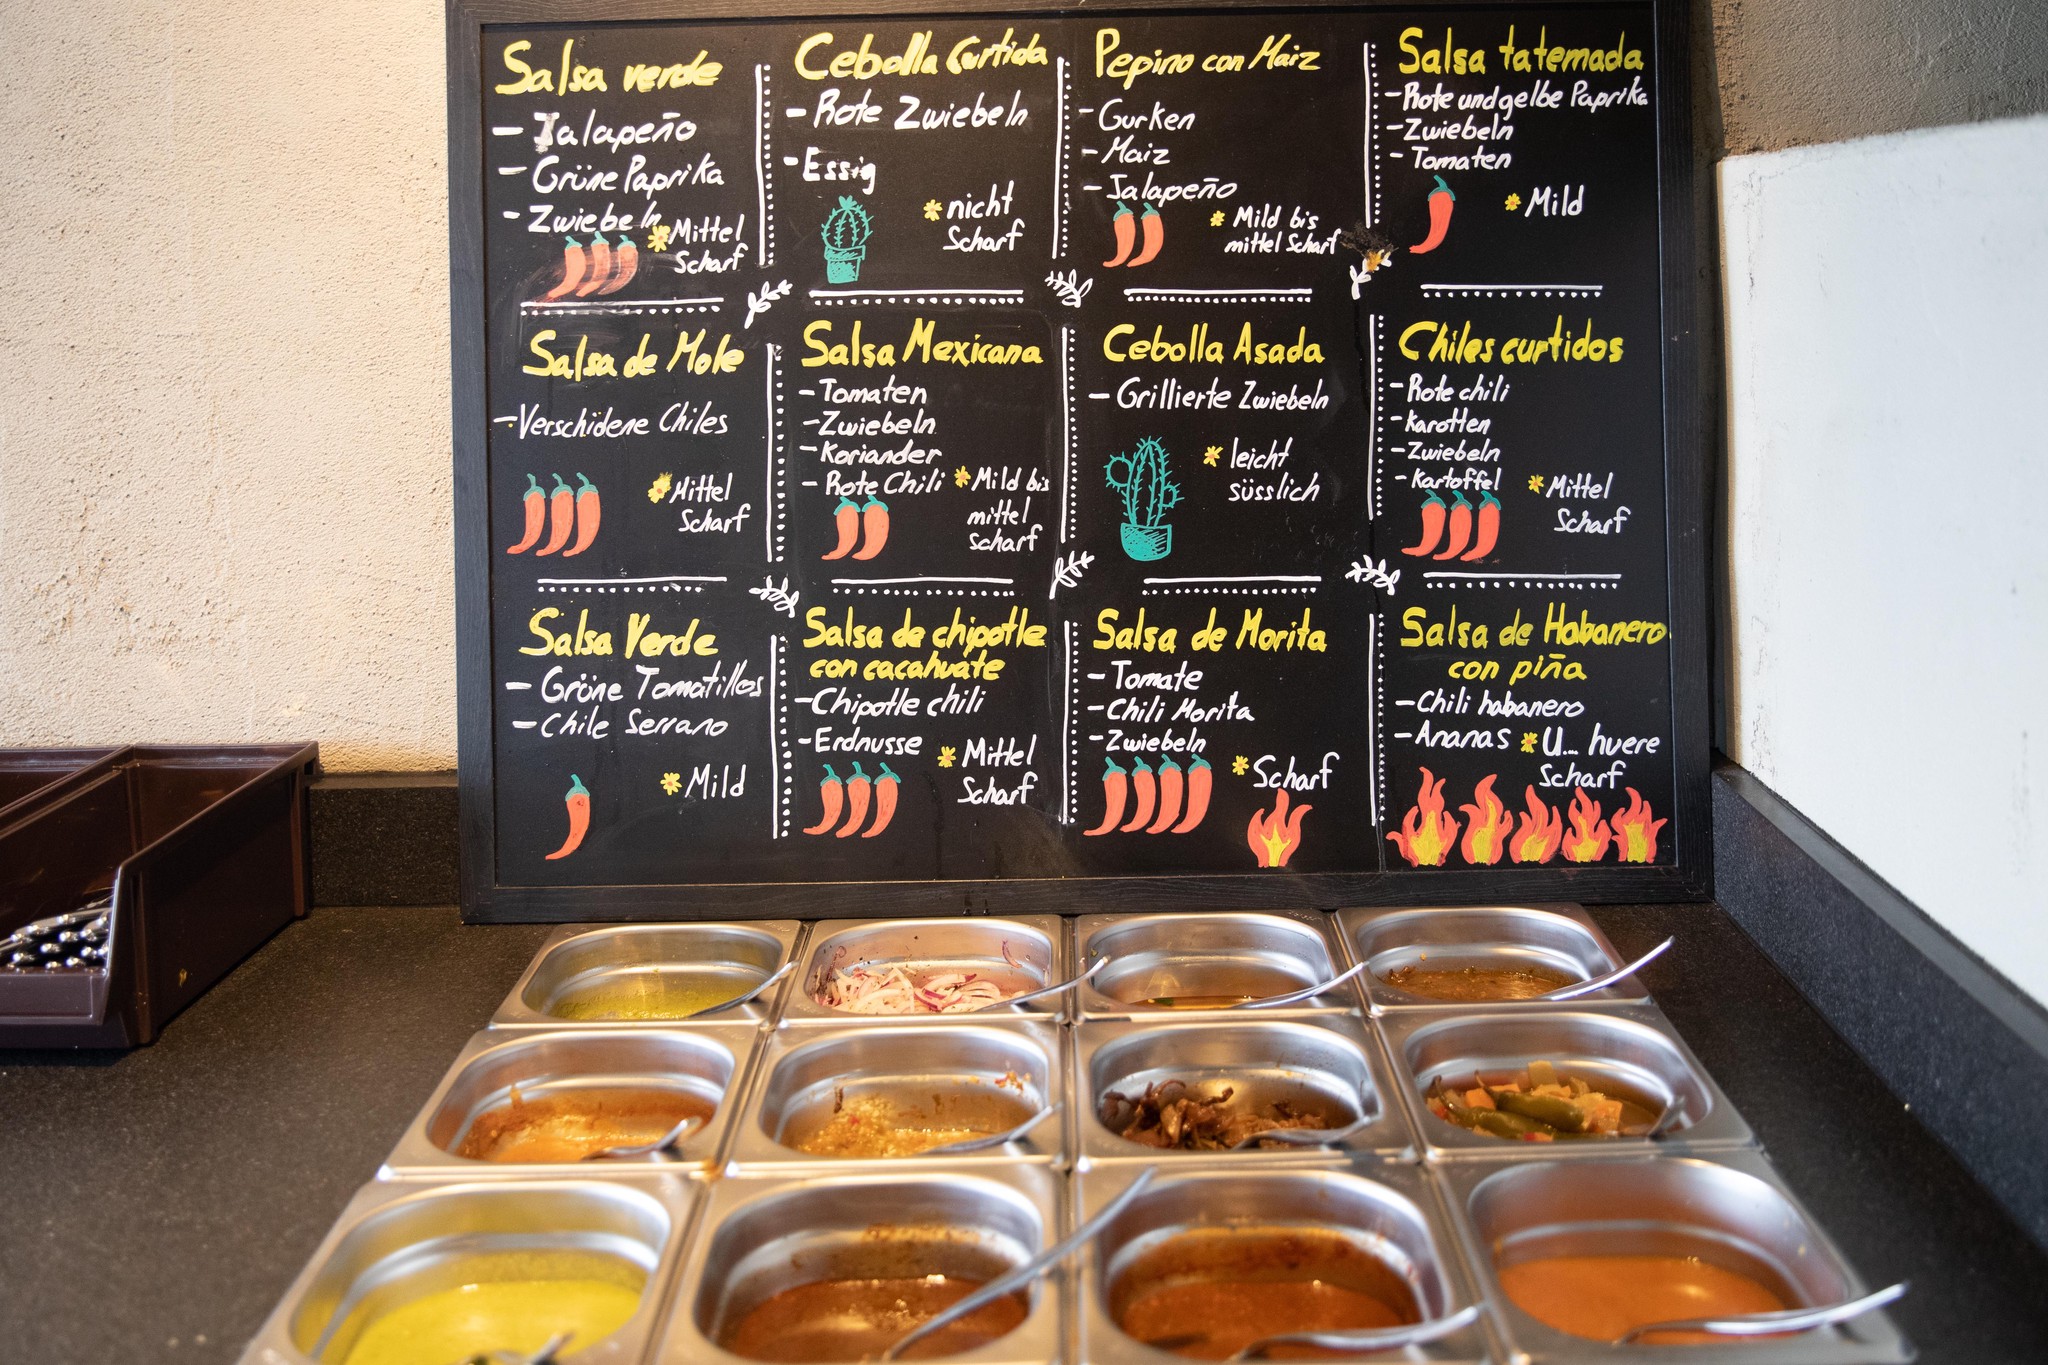 Salsa verde
- Jalapeño
- Grüne Paprika
- Zwiebeln
Mittel
Scharf
Cebolla Curtida
- Rote Zwiebeln
- Essig
nicht
Scharf
Pepino con Maiz
- Gurken
- Maiz
- Jalapeño
Mild bis
mittel Scharf
Salsa tatemada
- Rote und gelbe Paprika
- Zwiebeln
- Tomaten
Mild
Salsa de Mole
- Verschidene Chiles
Mittel
Scharf
Salsa Mexicana
- Tomaten
- Zwiebeln
- Koriander
- Rote Chili
Mild bis
mittel
Scharf
Cebolla Asada
- Grillierte Zwiebeln
leicht
süsslich
Chiles curtidos
- Rote chili
- Karotten
- Zwiebeln
- Kartoffel
Mittel
Scharf
Salsa Verde
- Grüne Tomatillos
- Chile Serrano
Mild
Salsa de chipotle
con cacahuate
- Chipotle chili
- Erdnusse
Mittel
Scharf
Salsa de Morita
- Tomate
- Chili Morita
- Zwiebeln
Scharf
Salsa de Habanero
con piña
- Chili habanero
- Ananas
U... huere
Scharf